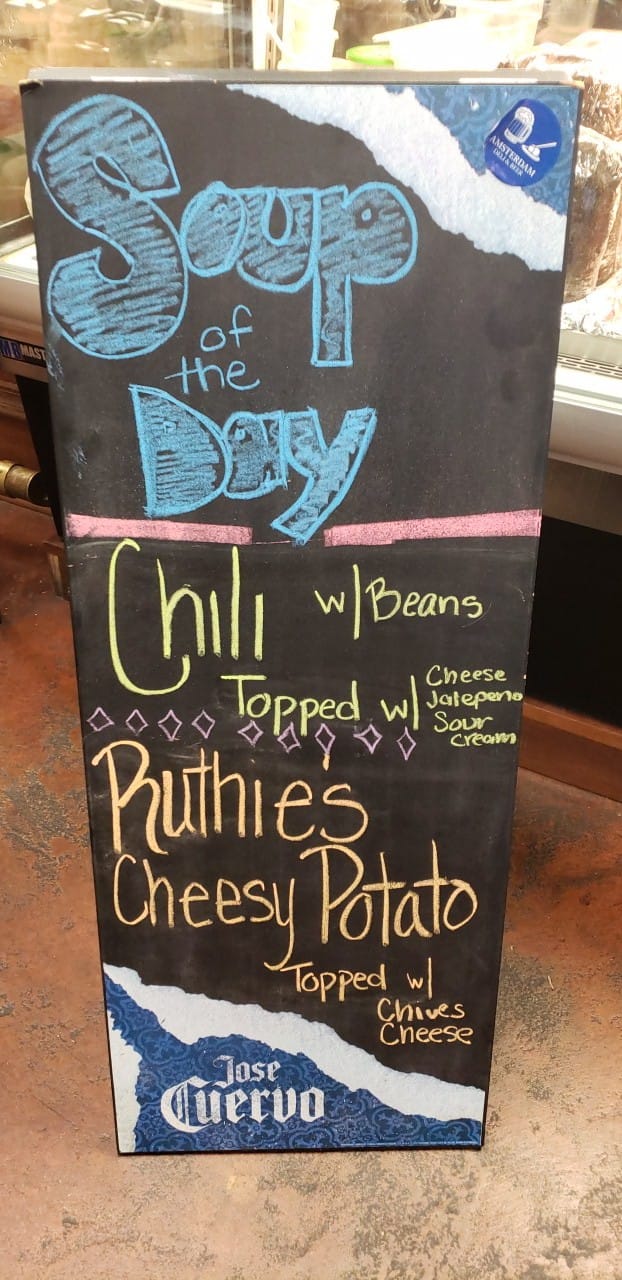 AMSTERDAM
DELI & BEER
Soup
of
the
Day
MAST
Chili w/Beans
Topped w/ Cheese
Jalepeno
Sour
Cream
Ruthie's
Cheesy Potato
Topped w/
Chives
Cheese
Jose
Cuervo